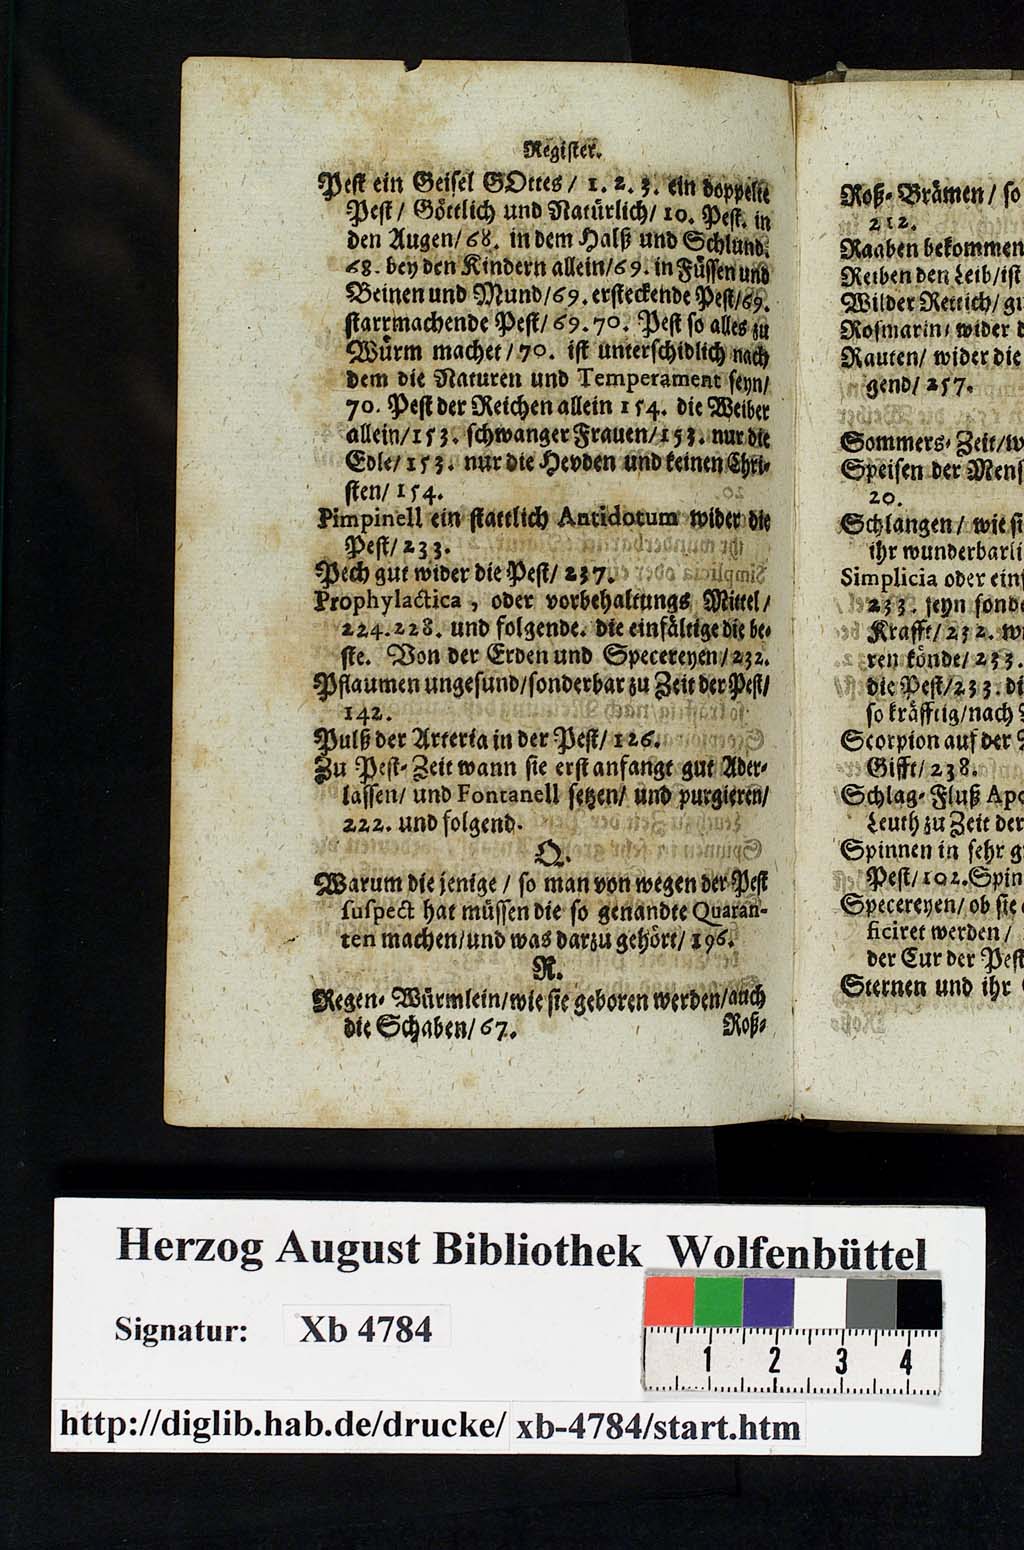 Register.
Pest ein Geisel GOttes / 1. 2. 3. ein doppelte
Pest / Göttlich und Natürlich / 10. Pest. in
den Augen / 68. in dem Halß und Schlund.
68. bey den Kindern allein / 69. in Füssen und
Beinen und Mund / 69. ersteckende Pest / 69.
starrmachende Pest / 69. 70. Pest so alles zu
Würm machet / 70. ist unterschidlich nach
dem die Naturen und Temperament seyn /
70. Pest der Reichen allein 154. die Weiber
allein / 153. schwanger Frauen / 153. nur die
Edle / 153. nur die Heyden und keinen Chri-
sten / 154.
Pimpinell ein stattlich Antidotum wider die
Pest / 233.
Pech gut wider die Pest / 237.
Prophylactica, oder vorbehaltungs Mittel /
224. 228. und folgende. die einfältige die be-
ste. Von der Erden und Specereyen / 232.
Pflaumen ungesund / sonderbar zu Zeit der Pest /
142.
Pulß der Arteria in der Pest / 126.
Zu Pest-Zeit wann sie erst anfangt gut Ader-
lassen / und Fontanell setzen / und purgieren /
222. und folgend.
Q.
Warum die jenige / so man von wegen der Pest
suspect hat müssen die so genandte Quaran-
ten machen / und was darzu gehört / 196.
R.
Regen-Würmlein / wie sie geboren werden / auch
die Schaben / 67.
Roß-
Roß-Brämen / so
212.
Raaben bekommen
Reiben den Leib / ist
Wilder Rettich /
Rosmarin / wider
Rauten / wider die
gend / 257.
Sommers-Zeit /
Speisen der Mens
20.
Schlangen / wie si
ihr wunderbarli
Simplicia oder einf
233. seyn sonde
Krafft / 232.
ren könde / 233.
die Pest / 233. di
so kräfftig / nach
Scorpion auf der
Gifft / 238.
Schlag-Fluß Apo
Leuth zu Zeit der
Spinnen in sehr g
Pest / 102. Spin
Specereyen / ob sie
ficiret werden /
der Cur der Pest
Sternen und ihr
Herzog August Bibliothek Wolfenbüttel
Signatur: Xb 4784
1 2 3 4
http://diglib.hab.de/drucke/ xb-4784/start.htm